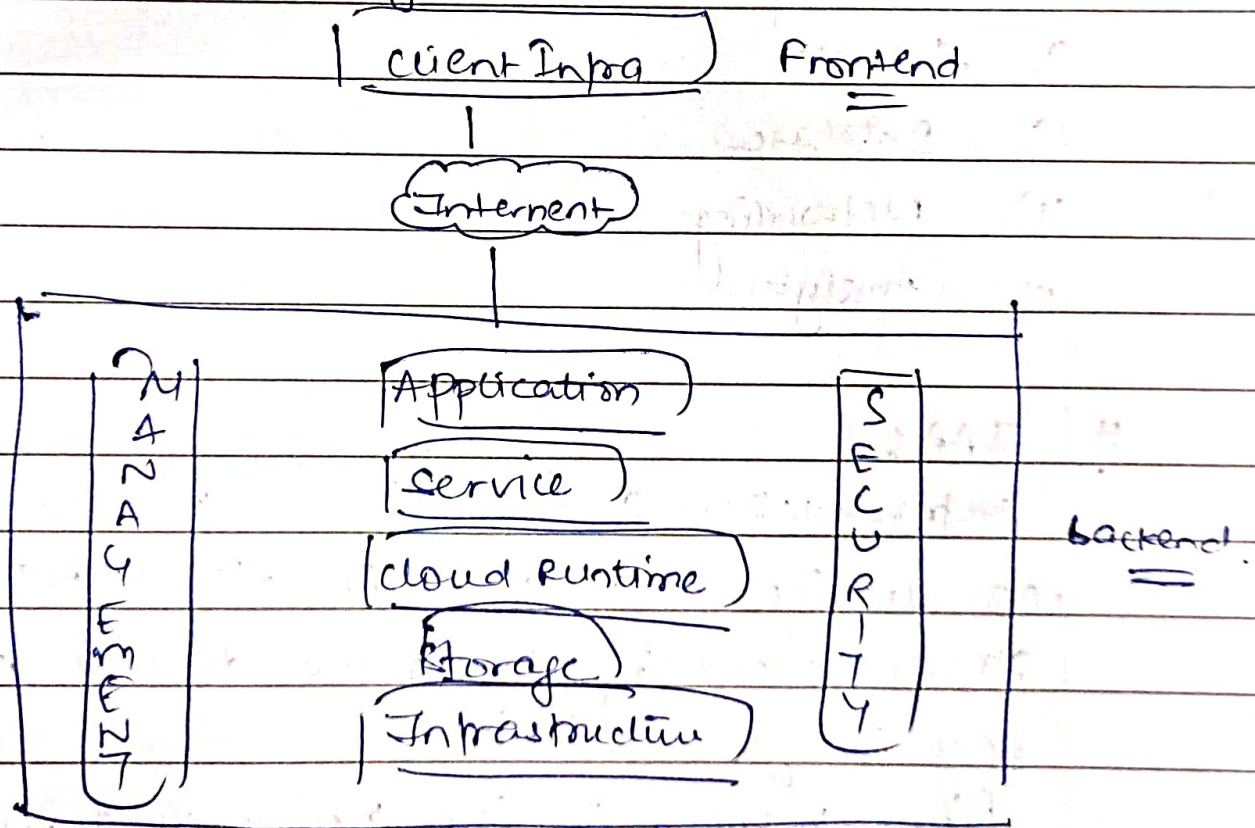 client Infra
Frontend
Internent
MANAGEMENT
Application
Service
cloud Runtime
Storage
Infrastructure
SECURITY
backend